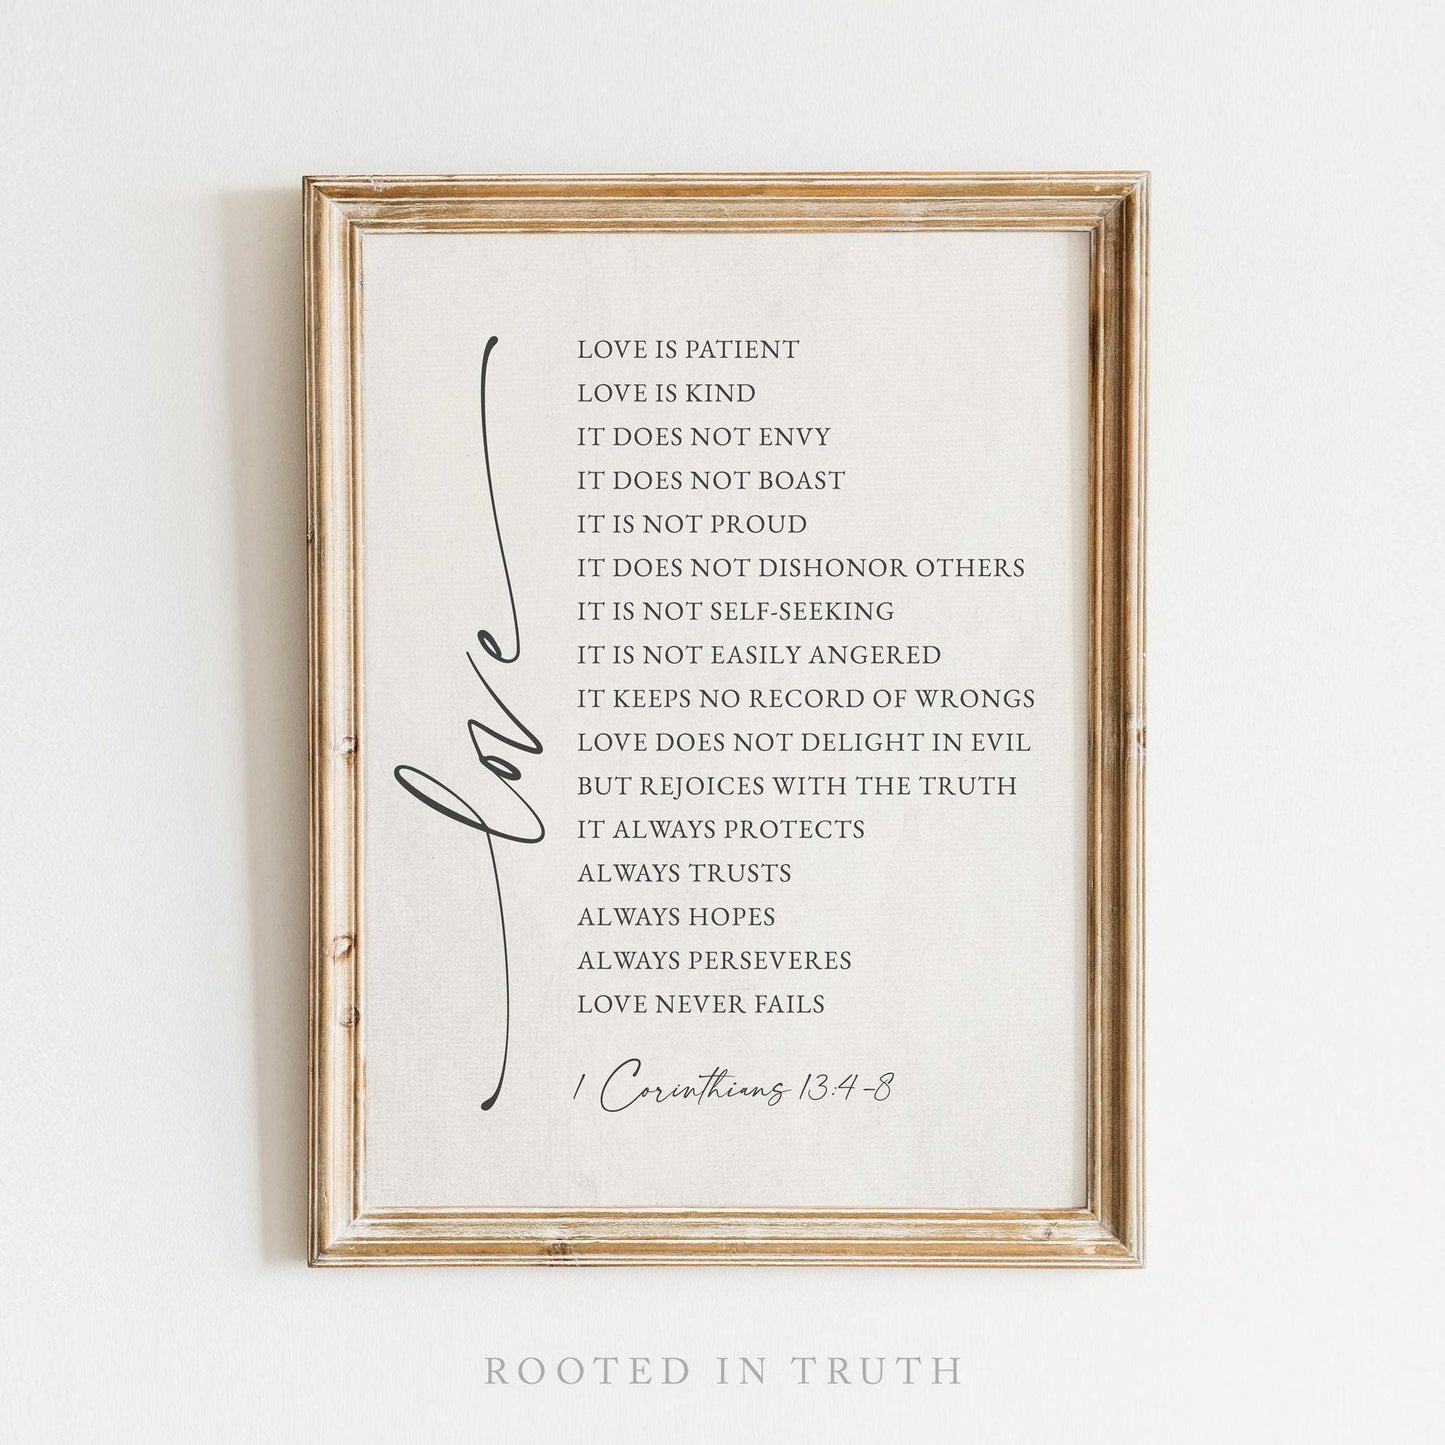 love
LOVE IS PATIENT
LOVE IS KIND
IT DOES NOT ENVY
IT DOES NOT BOAST
IT IS NOT PROUD
IT DOES NOT DISHONOR OTHERS
IT IS NOT SELF-SEEKING
IT IS NOT EASILY ANGERED
IT KEEPS NO RECORD OF WRONGS
LOVE DOES NOT DELIGHT IN EVIL
BUT REJOICES WITH THE TRUTH
IT ALWAYS PROTECTS
ALWAYS TRUSTS
ALWAYS HOPES
ALWAYS PERSEVERES
LOVE NEVER FAILS
1 Corinthians 13:4-8
ROOTED IN TRUTH